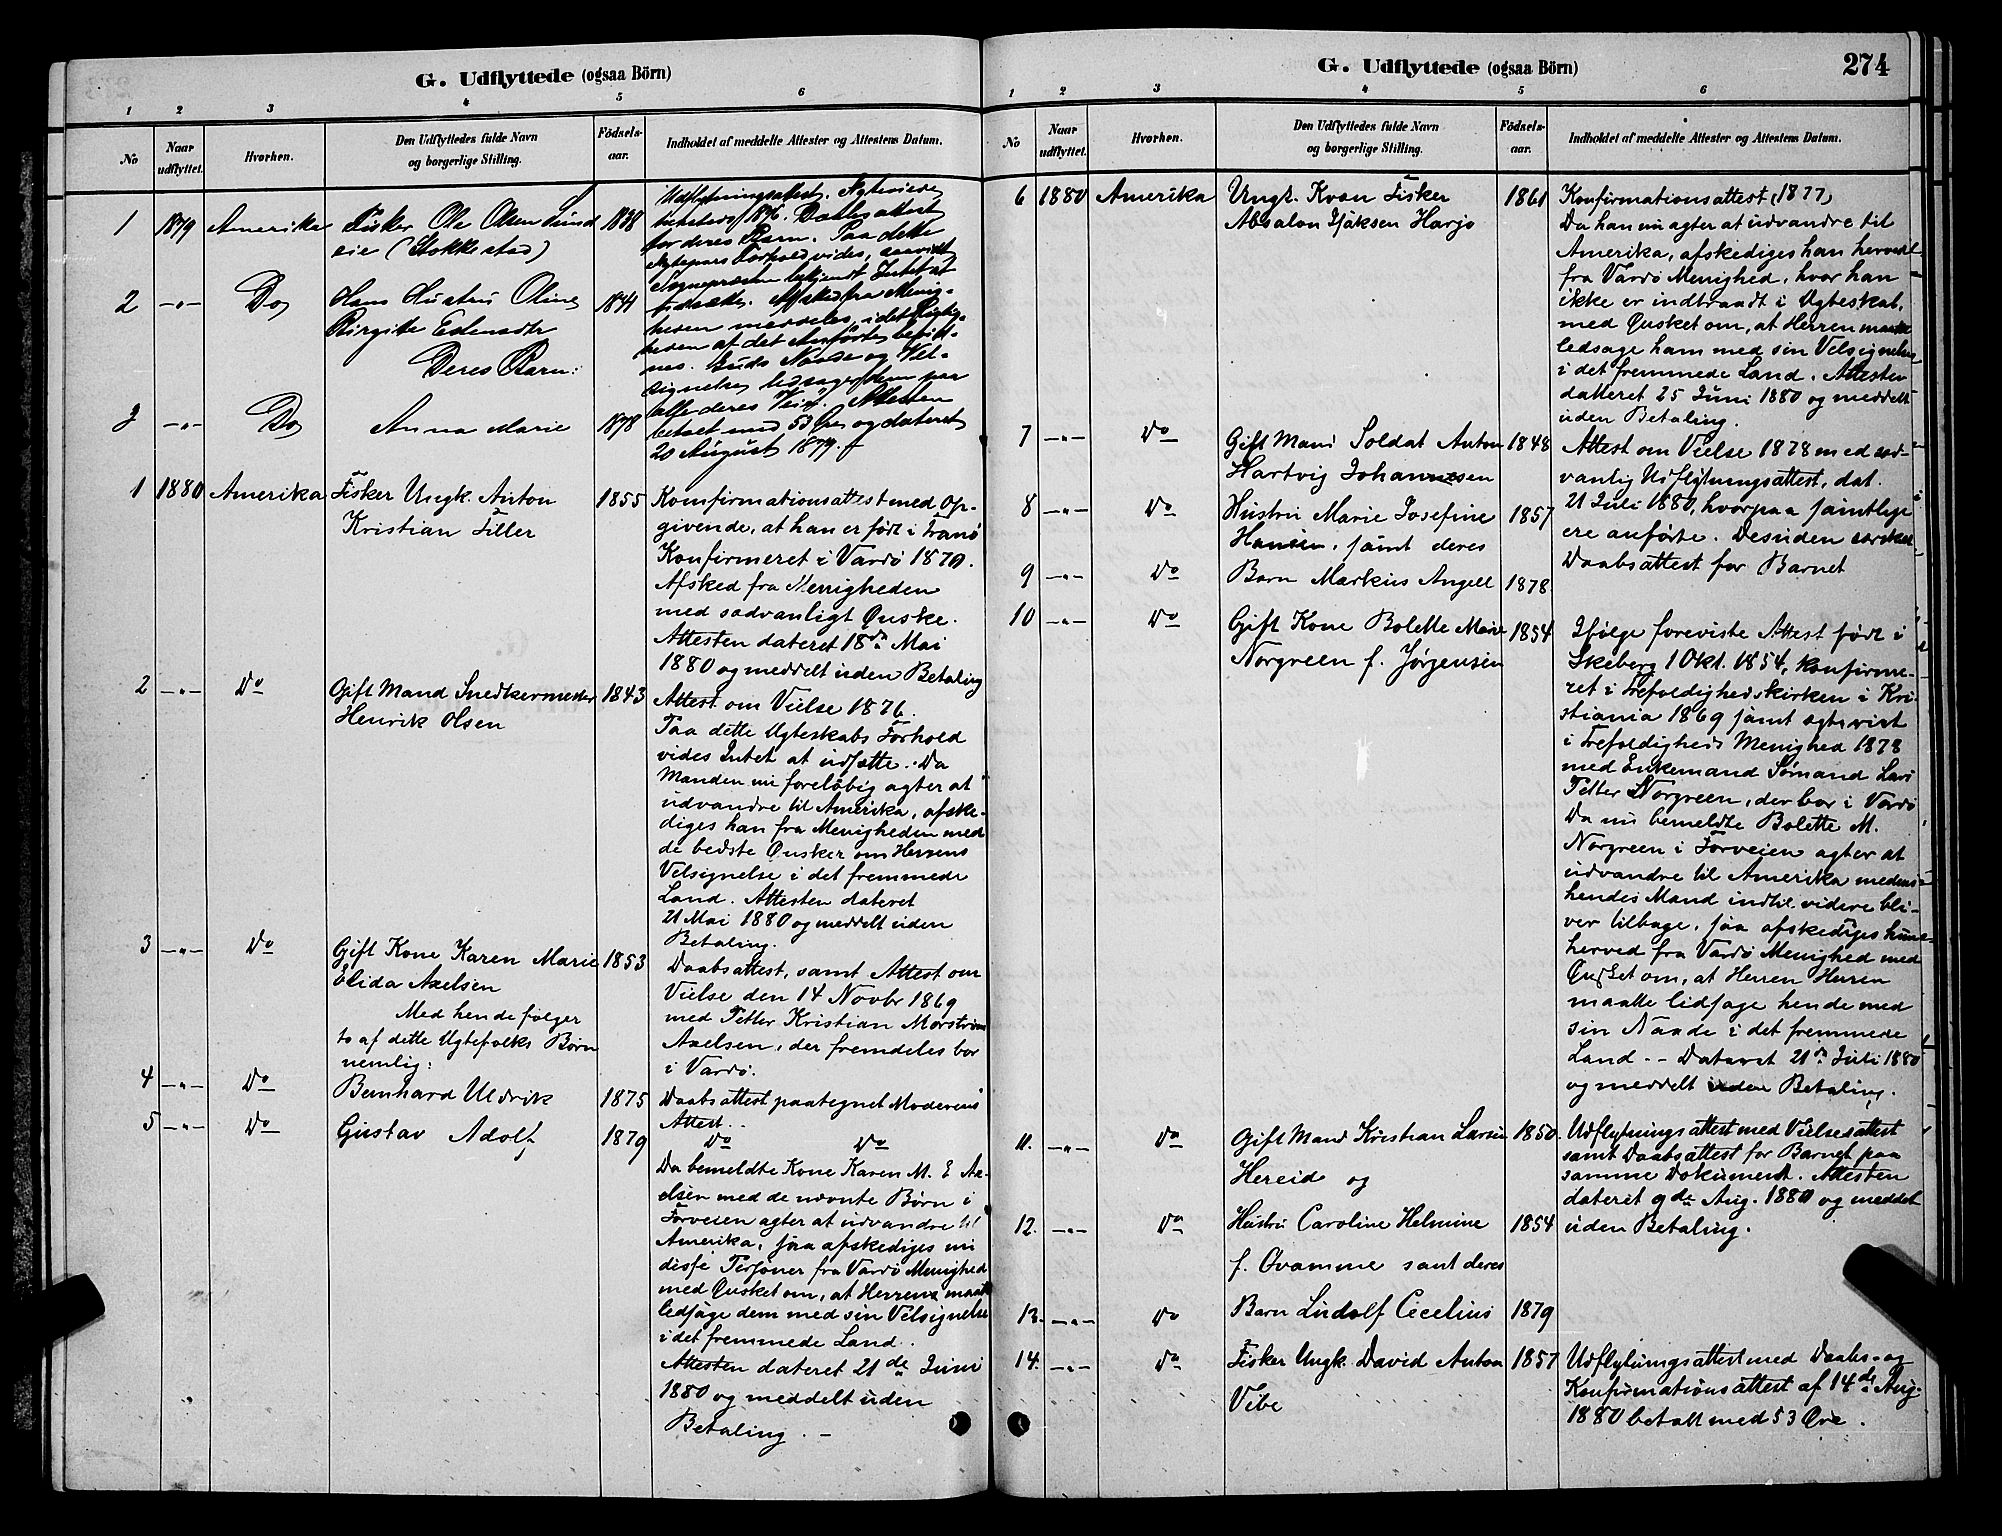 G. Udflyttede (ogsaa Börn)
1 2 3 4 5 6
No
Naar udflyttet.
Hvorhen.
Den Udflyttedes fulde Navn og borgerlige Stilling.
Fødsels-aar.
Indholdet af meddelte Attester og Attestens Datum.
1 1879 Amerika Fisker Ole Olsen Sund 1838
eie (Stokkestad)
2 -"- Do Hans Hustru Oline 1844
Birgitte Edensdtr
Deres Barn:
3 -"- Do Anna Marie 1878
Udflytningsattest. Ægteviede
Daabsattest
for deres Barn. Paa dette
Ægtepars Forhold vides, saavidt
Sognepræsten bekjendt Intet at
udsætte. Afsked fra Menig-
heden meddeles, idet Rigtig-
heden af det Anførte bevid-
nes. Guds Naade og Vel-
signelse ledsage dem paa
alle deres Veie! Attesten
betalt med 53 Øre og dateret
20 August 1879.
1 1880 Amerika Fisker Ungk. Anton 1855
Kristian Filler
Konfirmationsattest med Op-
givende, at han er født i Tranö
Konfirmeret i Vardö 1870.
Afsked fra Menigheden
med sædvanligt Ønske.
Attesten dateret 18de Mai
1880 og meddelt uden Betaling
2 -"- Do Gift Mand Snedkermester 1843
Henrik Olsen
Attest om Vielse 1876.
Paa dette Ægteskabs Forhold
vides Intet at udsætte. Da
Manden nu foreløbig agter at
udvandre til Amerika, afske-
diges han fra Menigheden med
de bedste Ønsker om Herrens
Velsignelse i det fremmede
Land. Attesten dateret
21 Mai 1880 og meddelt uden
Betaling.
3 -"- Do Gift Kone Karen Marie 1853
Elida Axelsen
Med hende følger
to af dette Ægtefolks Børn
nemlig:
Daabsattest, samt Attest om
Vielse den 14 Novbr 1869
med Petter Kristian Morstrøm
Axelsen, der fremdeles bor
i Vardø.
4 -"- Do Bernhard Uldrik 1875
Daabsattest paategnet Moderens
Attest.
5 -"- Do Gustav Adolf 1879
Do Do
Da bemeldte Kone Karen M. E. Ax-
elsen med de nævnte Børn i
Forveien agter at udvandre til
Amerika, saa afskediges nu
disse Personer fra Vardö Menighed
med Ønsket om, at Herren maatte
ledsage dem med sin Velsignelse
i det fremmede Land.
Attesten dateret 21de Juni
1880 og meddelt uden
Betaling. -
G. Udflyttede (ogsaa Börn)
274
1 2 3 4 5 6
No
Naar udflyttet.
Hvorhen.
Den Udflyttedes fulde Navn og borgerlige Stilling.
Fødsels-aar.
Indholdet af meddelte Attester og Attestens Datum.
6 1880 Amerika Ungk. Kvæn Fisker 1861
Absalon Isaksen Harjo
Konfirmationsattest (1877)
Da han nu agter at udvandre til
Amerika, afskediges han herved
fra Vardö Menighed, hvor han
ikke er indtraadt i Ægteskab,
med Ønsket om, at Herren maatte
ledsage ham med sin Velsignelse
i det fremmede Land. Attesten
dateret 25 Juni 1880 og meddelt
uden Betaling.
7 -"- Do Gift Mand Soldat Anton 1848
Hartvig Johannesen
8 -"- Do Hustru Marie Josefine 1857
Hansen, samt deres
9 -"- Do Barn Markus Angell 1878
Attest om Vielse 1878 med sæd-
vanlig Udflytningsattest, dat.
21 Juli 1880, hvorpaa samtlige
ere anførte. Desuden særskilt
Daabsattest for Barnet
10 -"- Do Gift Kone Bolette Marie 1854
Norgreen f. Jørgensen
Ifølge foreviste Attest født i
Skeberg 1 Okt. 1854, konfirme-
ret i Trefoldighedskirken i Kri-
stiania 1869 samt ægteviet
i Trefoldigheds Menighed 1878
med Enkemand Sømand Lars
Petter Norgreen, der bor i Vardö
Da nu bemeldte Bolette M.
Norgreen i Forveien agter at
udvandre til Amerika medens
hendes Mand indtil videre bli-
ver tilbage, saa afskediges hun
herved fra Vardö Menighed med
Ønsket om, at Herren Herren
maatte ledsage hende med
sin Naade i det fremmede
Land. - Dateret 21de Juli 1880
og meddelt uden Betaling.
11. -"- Do Gift Mand Kristian Larsen 1850.
Hereid og
12. -"- Do Hustru Caroline Helmine 1854
f. Qvamme samt deres
13. -"- Do Barn Ludolf Cecelius 1879
Udflytningsattest med Vielsesattest
samt Daabsattest for Barnet paa
samme Dokument. Attesten
dateret 9de Aug. 1880 og meddelt
uden Betaling.
14. -"- Do Fisker Ungk. David Anton 1857
Vibe
Udflytningsattest med Daabs- og
Konfirmationsattest af 14de Aug.
1880 betalt med 53 Øre.